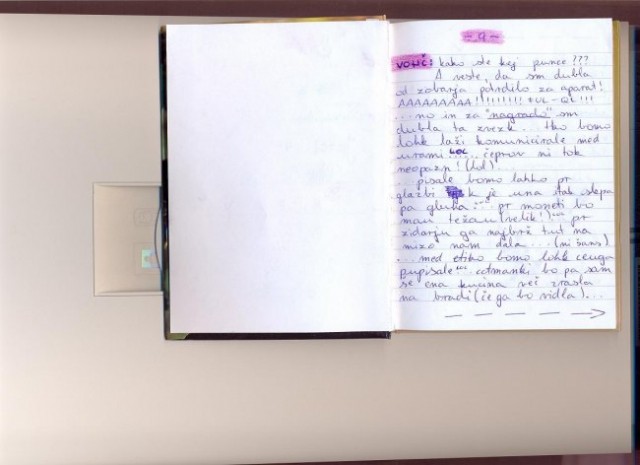 ~ 9 ~
VOJIČ: kako ste kej punce???
A veste, da sm dubla
od zobarja potrdilo za aparat!
AAAAAAAAA!!!!!!!!! FUL-QL!!!
...no in za "nagrado" sm
dubla ta zvezk... tko bomo
lohk lažj komunicirale med
urami... čeprov ni tok
neopazn! (lol)...
...pisale bomo lahko pr
glazbi k je una itak slepa
pa gluha... pr moneti bo
mau težau (velik!) pr
zidarju ga najbrž tut na
mizo nam dala... (ni šans)
...med etiko bomo lohk ceuga
popisale... cotmanki bo pa sam
še ena kucina več zrasla
na bradi (če ga bo vidla)...